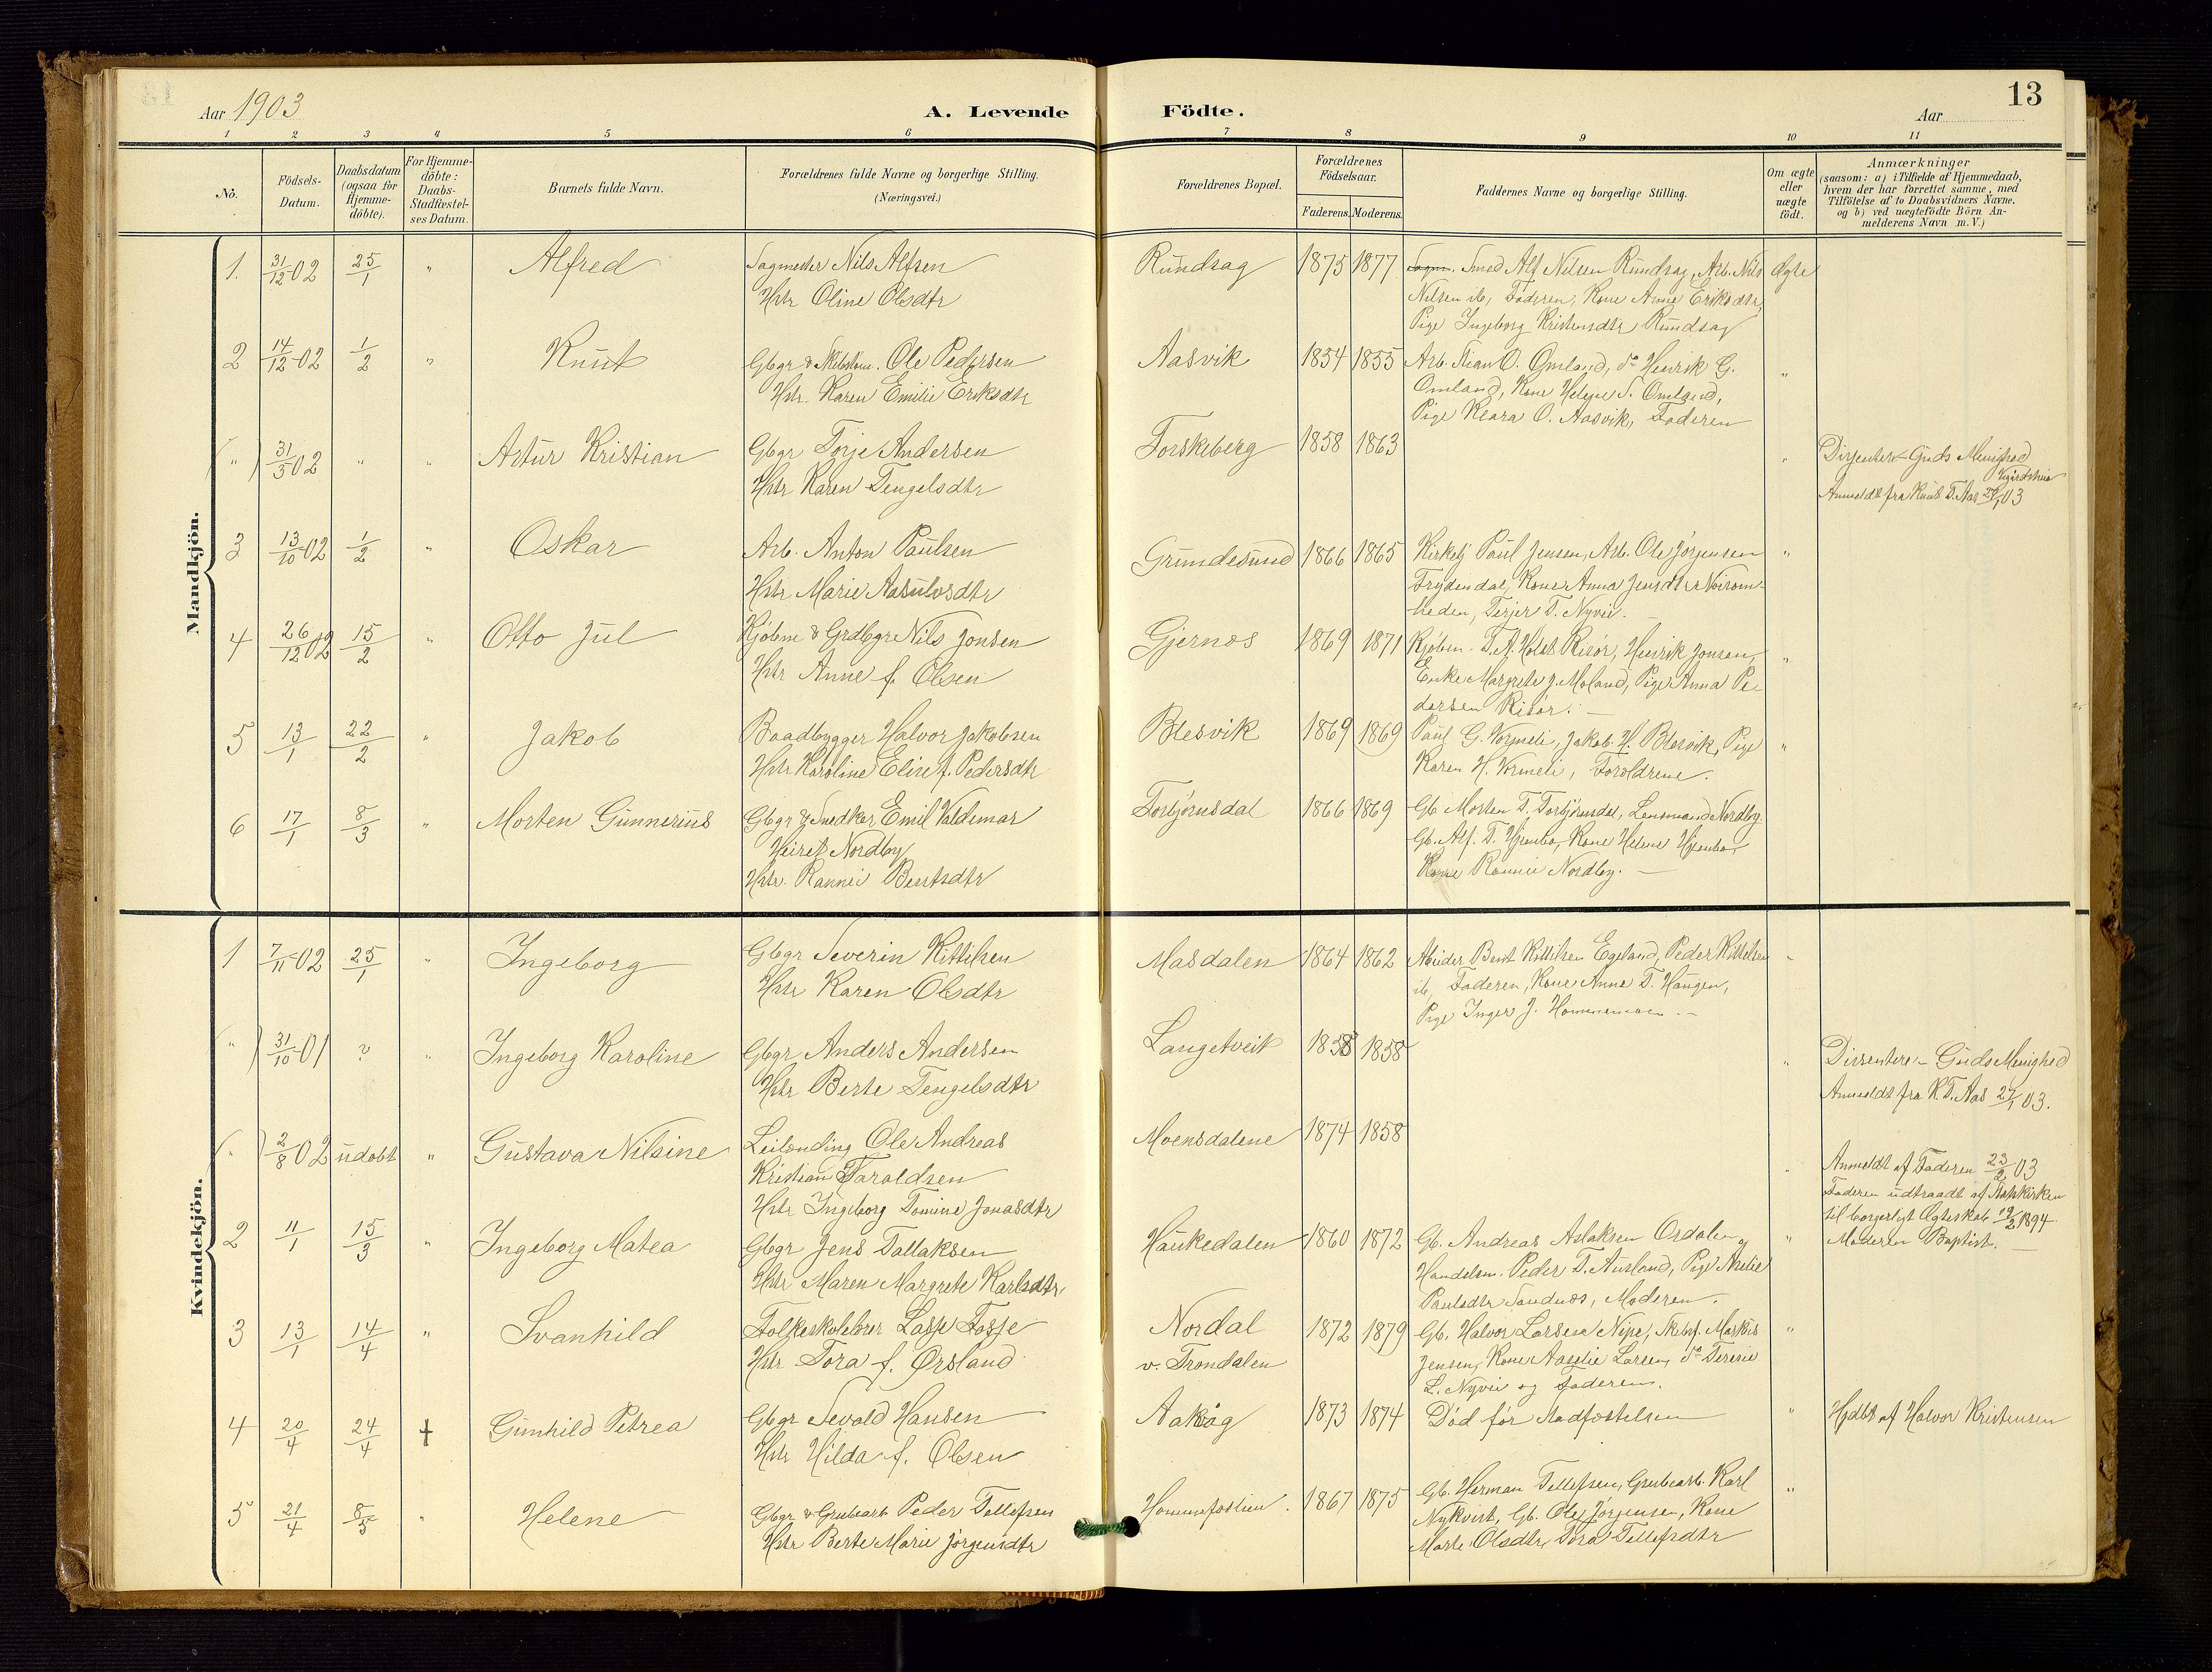 Aar 1903 A. Levende Födte. Aar 13
1 2 3 4 5 6 7 8 9 10 11
No.
Födsels-
Datum.
Daabsdatum
(ogsaa for
Hjemme-
döbte).
For Hjemme-
döbte:
Daabs-
Stadfæstel-
ses Datum.
Barnets fulde Navn.
Forældrenes fulde Navne og borgerlige Stilling.
(Næringsvei.)
Forældrenes Bopæl.
Forældrenes
Födselsaar.
Faderens. Moderens.
Faddernes Navne og borgerlige Stilling.
Om ægte
eller
uægte
födt.
Anmærkninger
(saasom: a) i Tilfælde af Hjemmedaab,
hvem der har forrettet samme, med
Tilföielse af to Daabsvidners Navne.
og b) ved uægtefödte Börn An-
melderens Navn m. V.)
Mandkjön.
1. 31/12-02 25/1 " Alfred
Sagmester Nils Alfsen
Hstr Oline Olsdtr
Rundsag 1875 1877
Smed Alf Nilsen Rundsag, Arb. Nils
Nilsen ib, Faderen, Kone Anne Eriksdtr,
Pige Ingeborg Kristensdtr Rundsag
Ægte
2 14/12-02 1/2 " Knut
Gbgr & Ole Pedersen
Hstr. Karen Emilie Eriksdtr
Aasvik 1854 1855
Arb. O. Omland, do Henrik G.
Omland, Kone Helene S. Omland,
Pige Klara O. Aasvik, Faderen
"
(") 31/5 02 " " Artur Kristian
Gbgr Torje Andersen
Hstr Karen Tengelsdtr
Torskeberg 1858 1863
"
Dissentere Guds Menighed
Anmeldt fra Knut T. Aas 27/1 03
3 13/10 02 1/2 " Oskar
Arb. Anton Paulsen
Hstr Marie Aasulvsdtr
Grundesund 1866 1865
Kirketj Paul Jensen, Arb. Ole Jørgensen
Frydendal, Kone Anna Jensdtr
heden, Terjer T. Nyvei.
"
4 26/12 02 15/2 " Otto Jul
Kjøbm & Grdbgr Nils Jonsen
Hstr Anne f. Olsen
Gjernes 1869 1871
Kjøbm. T. A. Holst Risør, Henrik Jonsen,
Enke Margrete J. Moland, Pige Anna Pe
dersen Risør.
"
5 13/1 22/2 " Jakob
Baadbygger Halvor Jakobsen
Hstr Karoline Elise f. Pedersdtr
Blesvik 1869 1869
Paul G. Vormeli, Jakob H. Blesvik, Pige
Karen H. Vormeli, Forældrene.
"
6 17/1 8/3 " Morten Gunnerius
Gbgr & Snedker Emil Valdemar
Nordby
Hstr. Rannei Bentsdtr
Torbjørnsdal 1866 1869
Gb Morten T. Torbjørnsdal, Lensmand Nordby
Gb. Alf. T. Kone Helene
Kone Rannei Nordby.
Kvindekjön.
1 7/11-02 25/1 " Ingeborg
Gbgr Severin Kittilsen
Hstr Karen Olsdtr
Masdalen 1864 1862
Bent Kittilsen Egeland, Peder Kittilsen
ib, Faderen, Kone Anne T. Haugen,
Pige Inger J.
"
") 31/10-01 ? " Ingeborg Karoline
Gbgr Anders Andersen
Hstr Berte Tengelsdtr
Langetveit 1858 1858
"
Dissentere - Guds Menighed
Anmeldt fra K T. Aas 27/1 03.
(") 2/8 02 udøbt " Gustava Nilsine
Leilænding Ole Andreas
Kristian Taraldsen
Hstr Ingeborg Tomine Jonasdtr
Moensdalene 1874 1858
"
Anmeldt af Faderen 23/2 03
Faderen udtraadt af Statskirken
til borgerligt Ægteskab 19/2 1894
Moderen Baptist.
2 11/1 15/3 " Ingeborg Matea
Gbgr Jens Tallaksen
Hstr Maren Margrete Karlsdtr,
Haukedalen 1860 1872
Gb. Andreas Aslaksen Osdalen,
Handelsm. Peder T. Ausland, Pige Aselie
Paulsdtr Sandnes, Moderen.
"
3 13/1 14/4 " Svanhild
Folkeskolelærer Lasse Fosse
Hstr Tora f. Ørsland
Nordal
v. Trondalen
1872 1879
Gb. Halvor Larsen Nipe, Skibsf. Markus
Jensen, Kone Aaselie Larsen, do Teresie
L. Nyvei og Faderen.
"
4 20/4 24/4 † Gunhild Petrea
Gbgr Sevald Hansen
Hstr Hilda f. Olsen
Aakvåg 1873 1874
Død før Stadfæstelsen
"
Hjdbt af Halvor Kristensen
5 21/4 8/5 " Helene
Gbgr & Grubearb Peder Tellefsen
Hstr Berte Marie Jørgensdtr
Hommefostien. 1867 1875
Gb. Herman Tellefsen, Grubearb. Karl
Nykvist, Gb. Ole Jørgensen, Kone
Marte Olsdtr, Tora Tellefsdtr
"